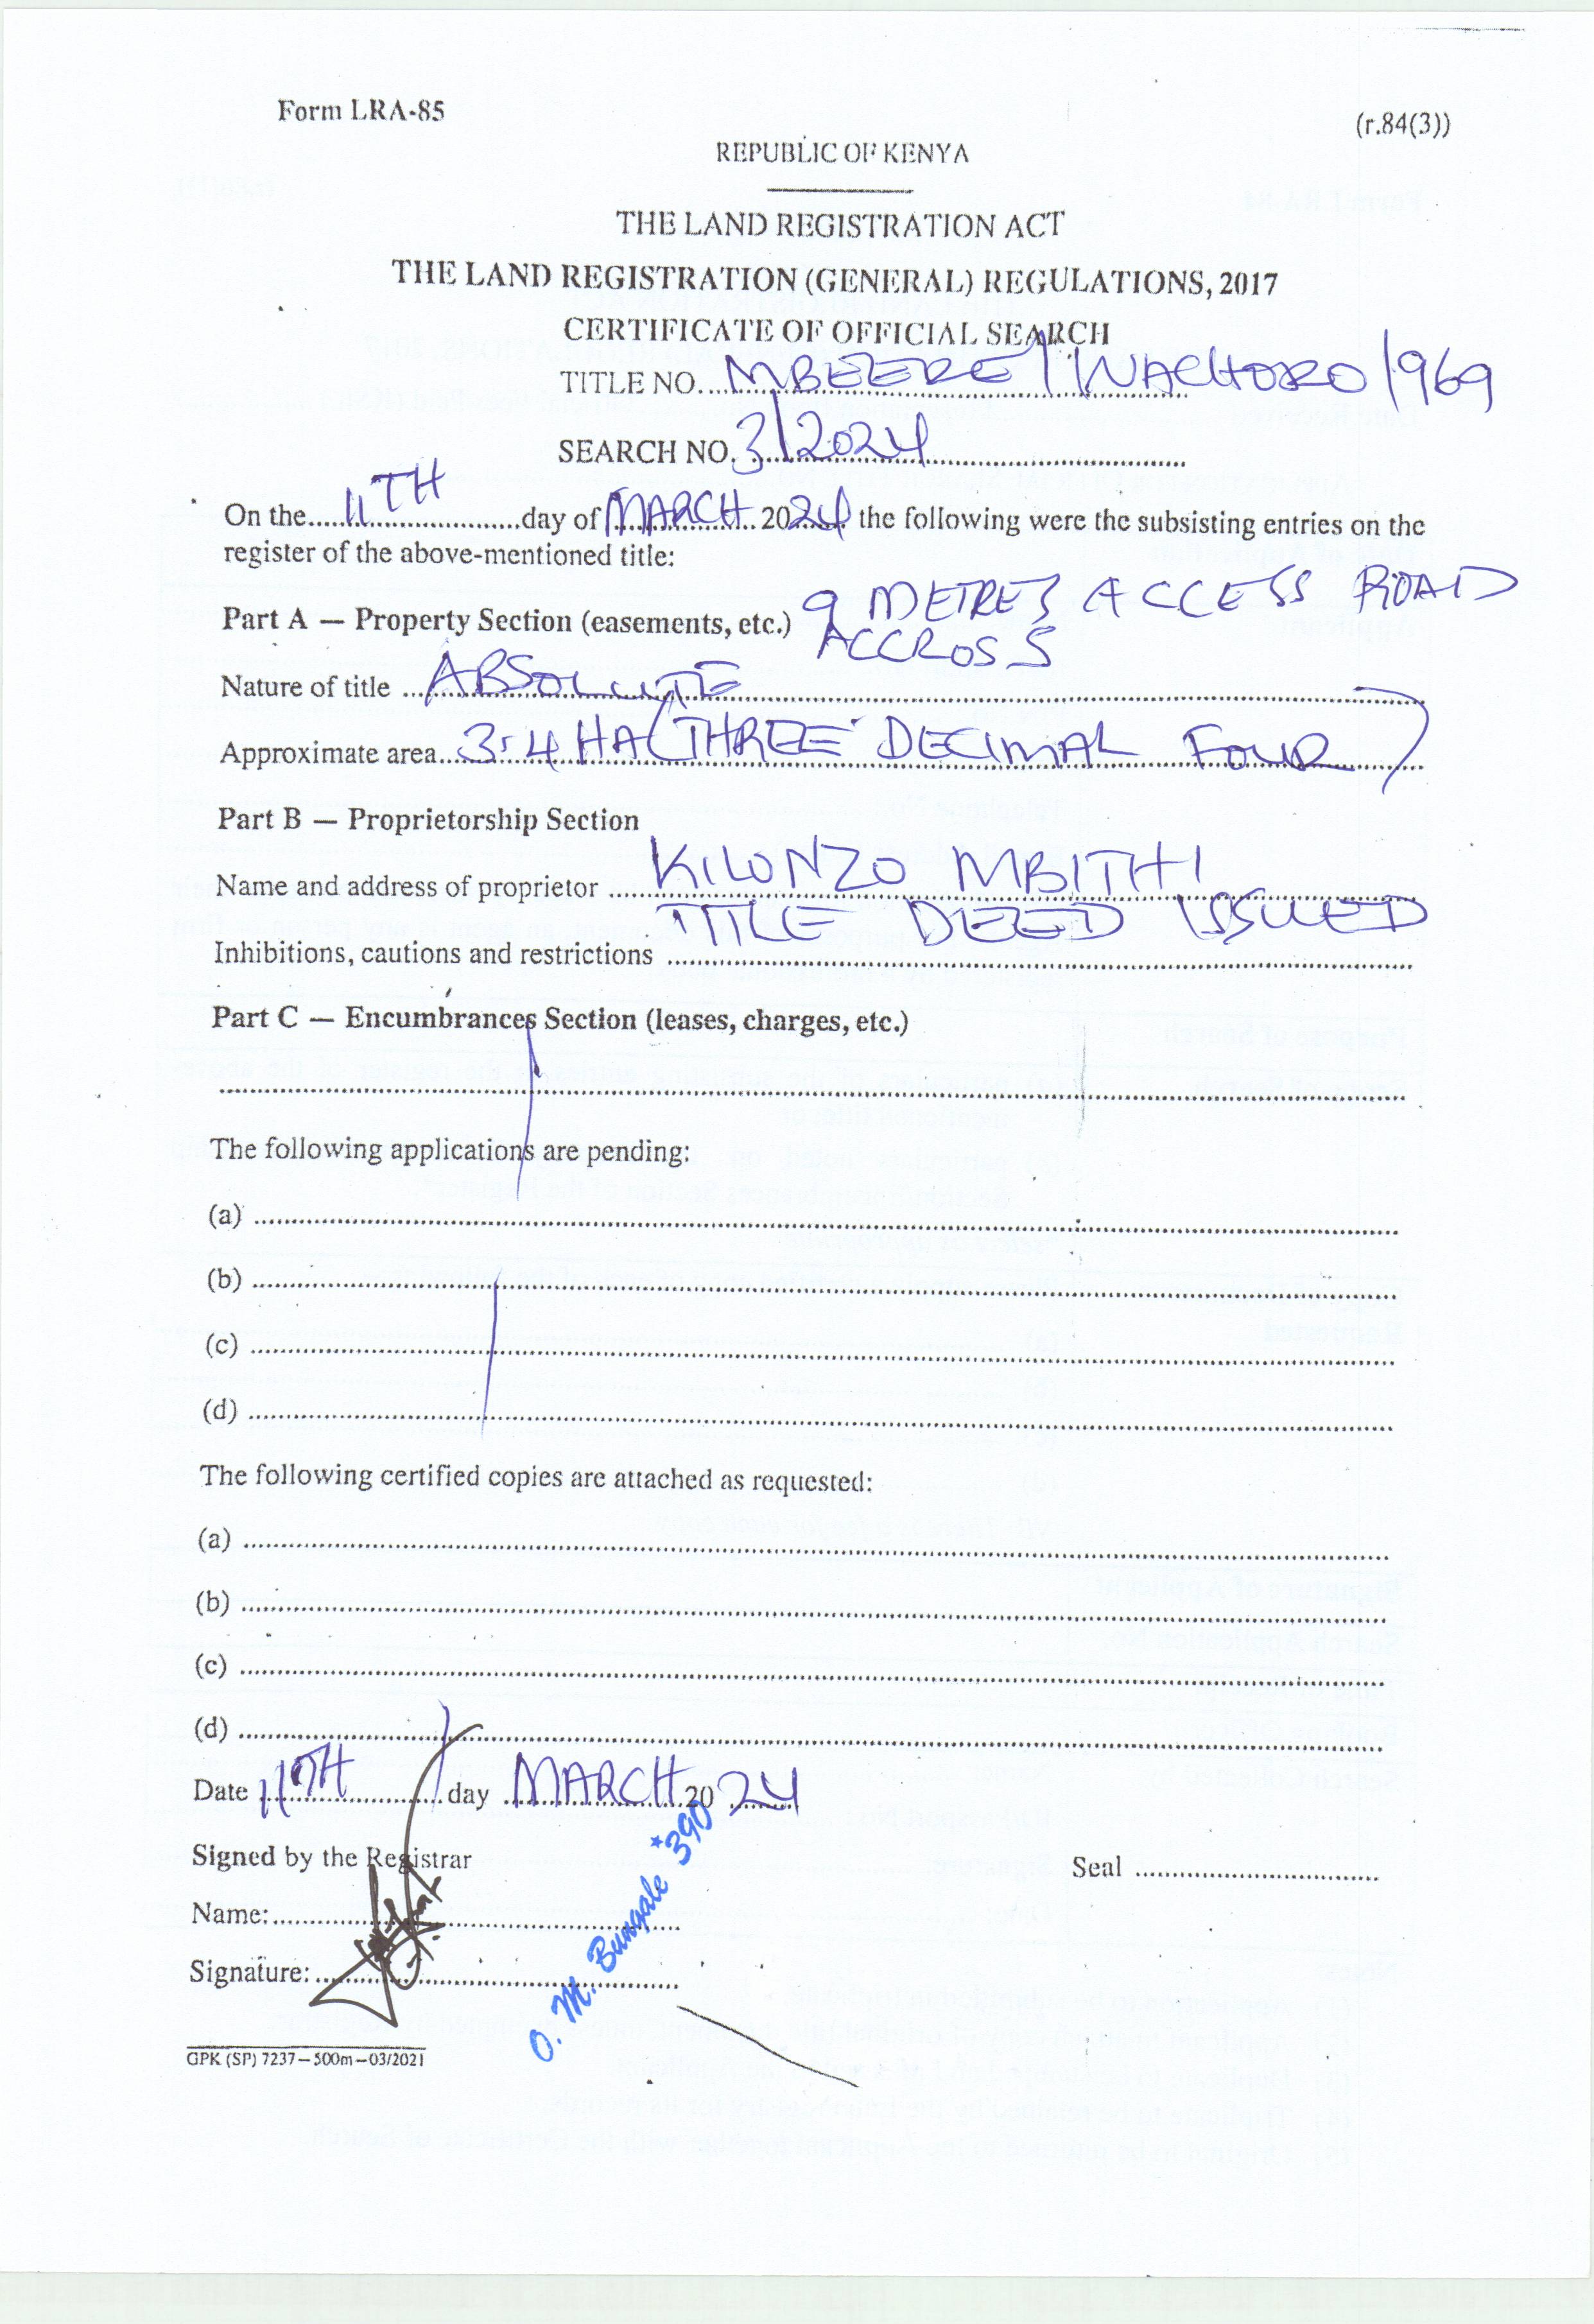 Form LRA-85
(r.84(3))
REPUBLIC OF KENYA
THE LAND REGISTRATION ACT
THE LAND REGISTRATION (GENERAL) REGULATIONS, 2017
CERTIFICATE OF OFFICIAL SEARCH
TITLE NO. MBEERE/WACHORO/969
SEARCH NO. 3/2024
On the 11TH day of MARCH 2024 the following were the subsisting entries on the
register of the above-mentioned title:
Part A — Property Section (easements, etc.) 9 METRES ACCESS ROAD
ACCROSS
Nature of title ABSOLUTE
Approximate area 3.4 HA (THREE DECIMAL FOUR)
Part B — Proprietorship Section
Name and address of proprietor KILONZO MBITHI
TITLE DEED ISSUED
Inhibitions, cautions and restrictions
Part C — Encumbrances Section (leases, charges, etc.)
The following applications are pending:
(a)
(b)
(c)
(d)
The following certified copies are attached as requested:
(a)
(b)
(c)
(d)
Date 11TH day MARCH 2024
Signed by the Registrar
Seal
Name:
Signature:
O. M. Bungale *390
GPK (SP) 7237—500m—03/2021